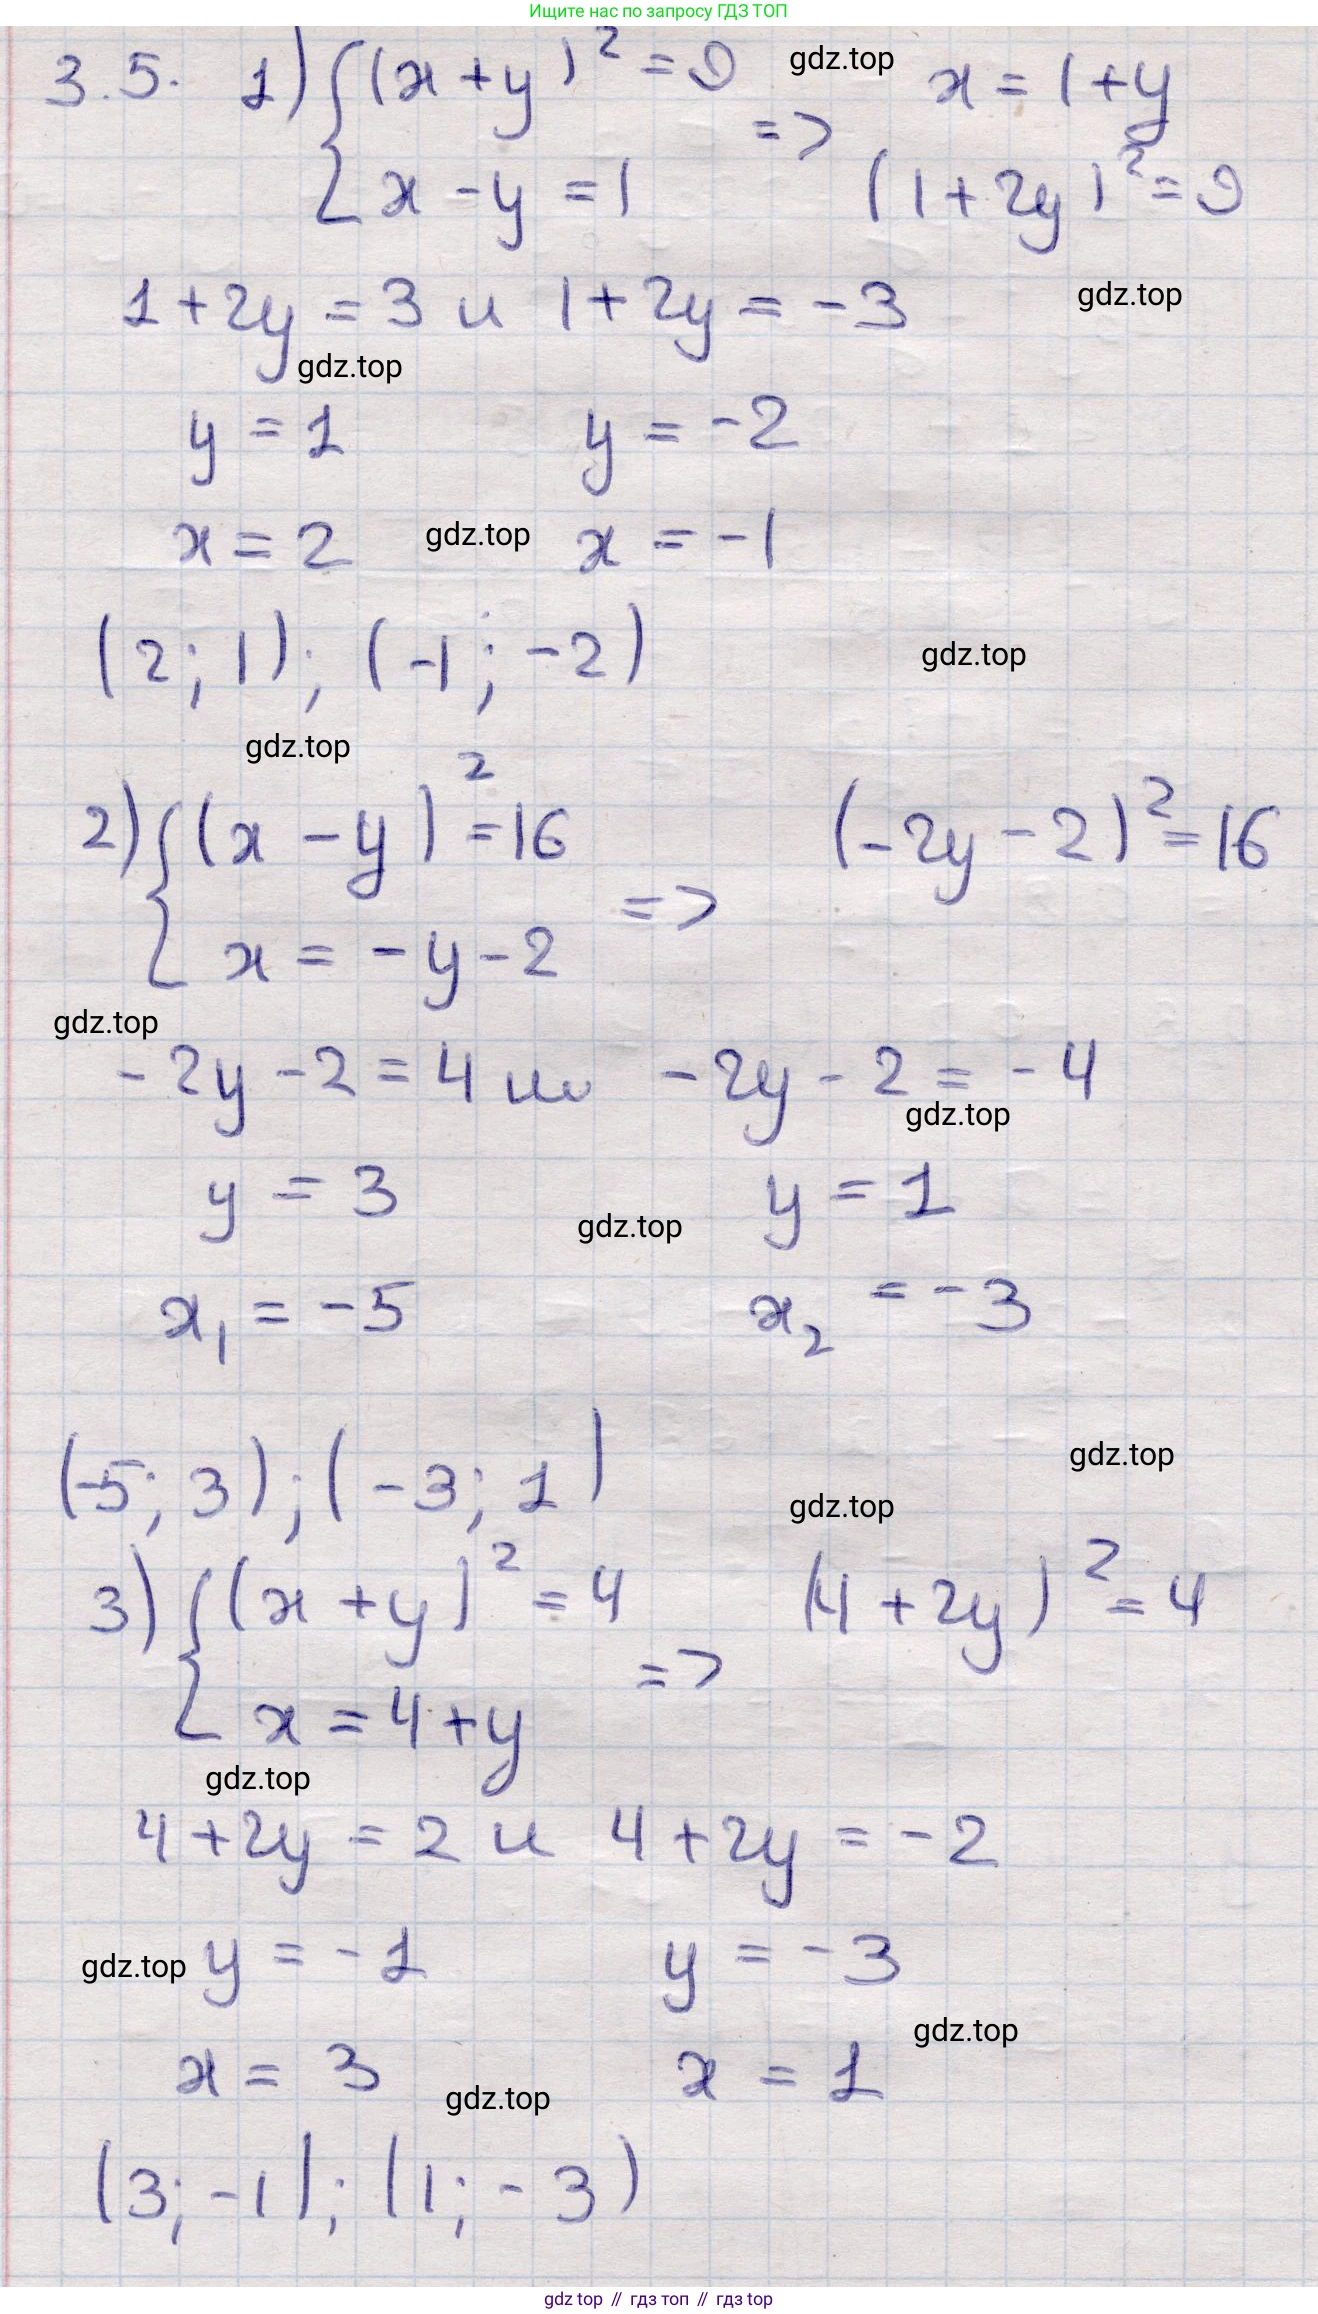 Ищите нас по запросу ГДЗ ТОП
3.5. 1) { (x+y)² = 9 gdz.top x = 1+y
x - y = 1 => (1+2y)² = 9
1+2y = 3 и 1+2y = -3 gdz.top
gdz.top
y = 1 y = -2
x = 2 gdz.top x = -1
(2; 1); (-1; -2) gdz.top
gdz.top
2) { (x - y)² = 16 (-2y - 2)² = 16
x = -y - 2 =>
gdz.top
-2y - 2 = 4 -2y - 2 = -4
gdz.top
y = 3 gdz.top y = 1
x₁ = -5 x₂ = -3
gdz.top
(-5; 3); (-3; 1) gdz.top
3) { (x+y)² = 4 (4+2y)² = 4
x = 4+y =>
gdz.top
4+2y = 2 и 4+2y = -2
gdz.top y = -1 y = -3
gdz.top
x = 3 gdz.top x = 1
(3; -1); (1; -3)
gdz top // гдз топ // гдз top